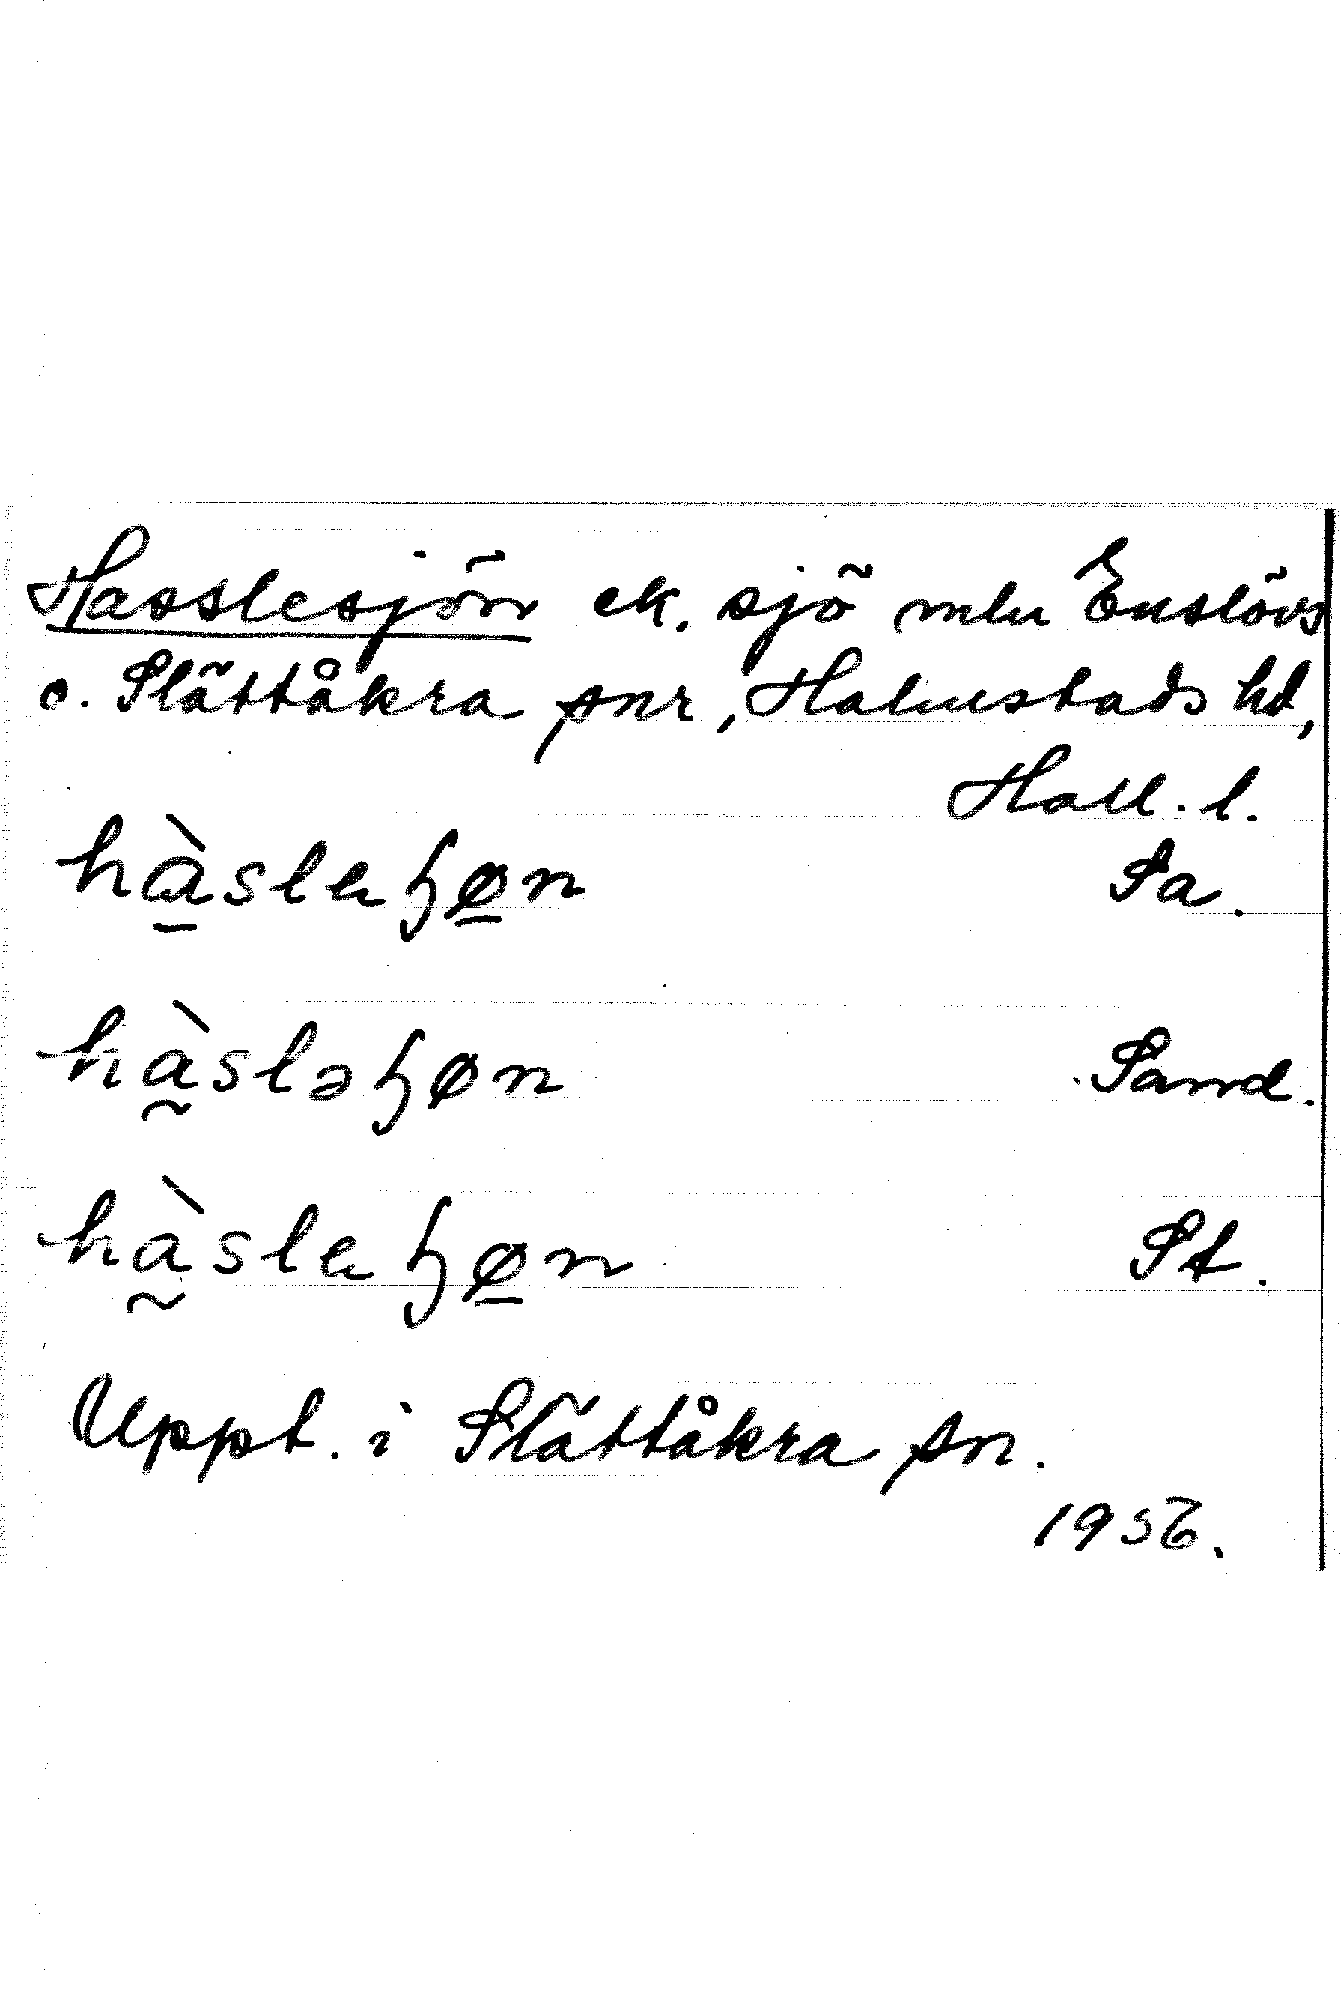 Hasslesjön ek. sjö mlu Enslövs
o. Slättåkra snr, Halmstads hd,
Hall. l.
hàsleɧøn Sa.
hàsləɧøn Sand.
hàsleɧøn St.
Uppt. i Slättåkra sn.
1956.